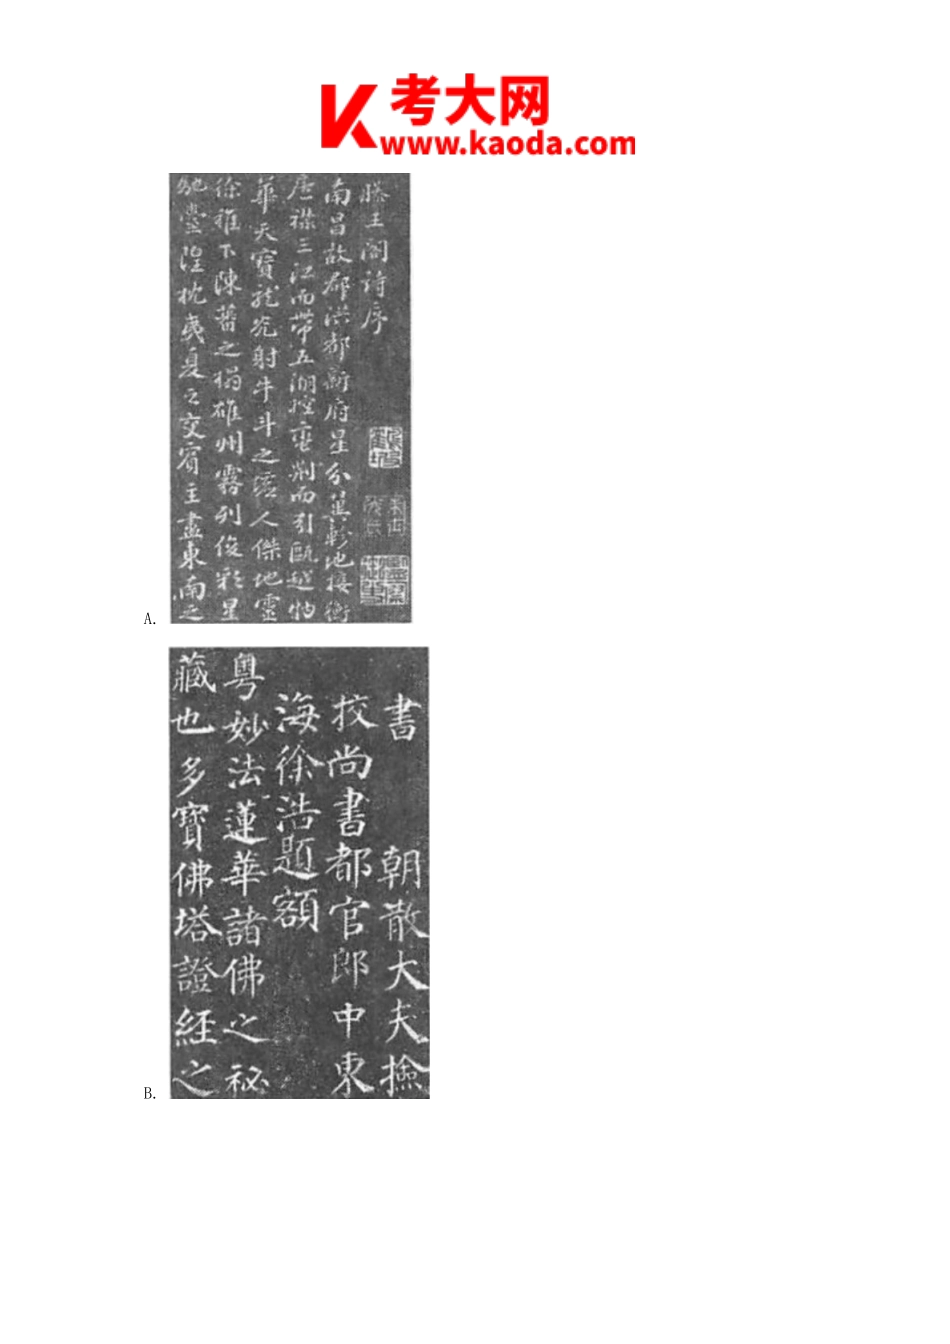 考大网
www.kaoda.com
滕王阁诗序
南昌故郡洪都新府星分翼軫地接衡
廬襟三江而帶五湖控蠻荆而引甌越物
華天寶龍光射牛斗之墟人傑地靈
徐穉下陳蕃之榻雄州霧列俊彩星
馳臺隍枕夷夏之交賓主盡東南之
A.
書 朝散大夫撿
挍尚書都官郎中東
海徐浩題額
粵妙法蓮華諸佛之祕
藏也多寶佛塔證經之
B.